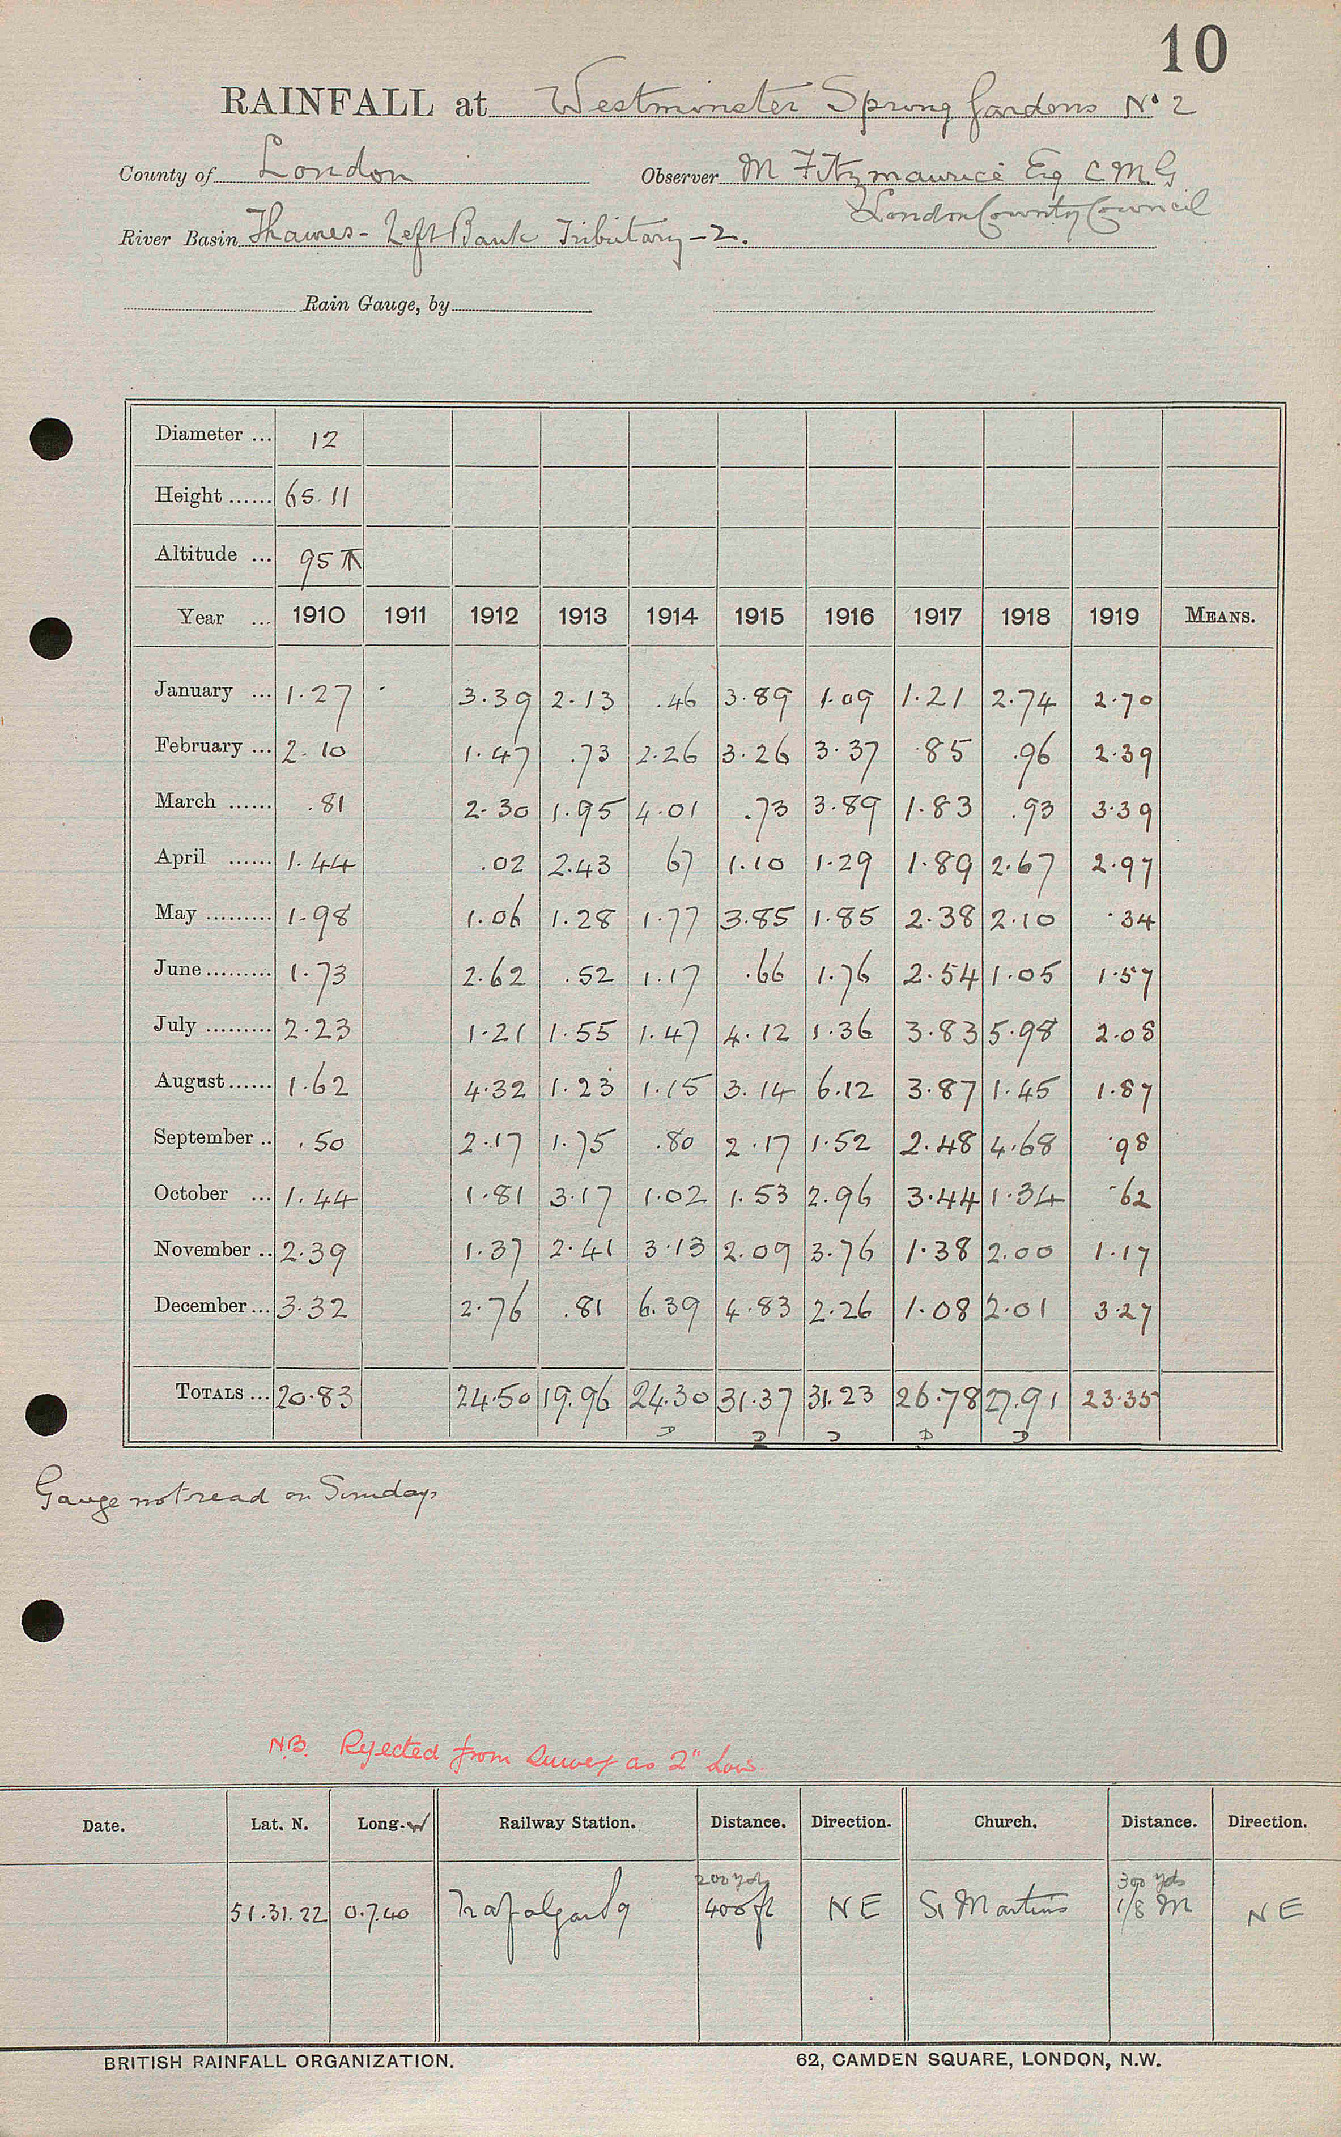 10
RAINFALL at Westminster Spring Gardens No 2
County of London Observer M Fitzmaurice Esq C M G
London County Council
River Basin Thames - Left Bank Tributary - 2.
Rain Gauge, by
Diameter ... 12
Height ...... 65. 11
Altitude ... 95
Year ... 1910 1911 1912 1913 1914 1915 1916 1917 1918 1919 MEANS.
January ... 1.27 3.39 2.13 .46 3.89 1.09 1.21 2.74 2.70
February ... 2.10 1.47 .73 2.26 3.26 3.37 .85 .96 2.39
March ...... .81 2.30 1.95 4.01 .73 3.89 1.83 .93 3.39
April ...... 1.44 .02 2.43 67 1.10 1.29 1.89 2.67 2.97
May ......... 1.98 1.06 1.28 1.77 3.85 1.85 2.38 2.10 .34
June ......... 1.73 2.62 .52 1.17 .66 1.76 2.54 1.05 1.57
July ......... 2.23 1.21 1.55 1.47 4.12 1.36 3.83 5.98 2.08
August ...... 1.62 4.32 1.23 1.15 3.14 6.12 3.87 1.45 1.87
September .. .50 2.17 1.75 .80 2.17 1.52 2.48 4.68 .98
October ... 1.44 1.81 3.17 1.02 1.53 2.96 3.44 1.34 .62
November .. 2.39 1.37 2.41 3.13 2.09 3.76 1.38 2.00 1.17
December ... 3.32 2.76 .81 6.39 4.83 2.26 1.08 2.01 3.27
TOTALS ... 20.83 24.50 19.96 24.30 31.37 31.23 26.78 27.91 23.35
D D D D D
Gauge not read on Sundays
N.B. Rejected from Survey as 2" low.
Date. Lat. N. Long. W Railway Station. Distance. Direction. Church. Distance. Direction.
200 yds 300 yds
51.31.22 0.7.40 Trafalgar Sq 400 ft NE St Martins 1/8 M NE
BRITISH RAINFALL ORGANIZATION. 62, CAMDEN SQUARE, LONDON, N.W.